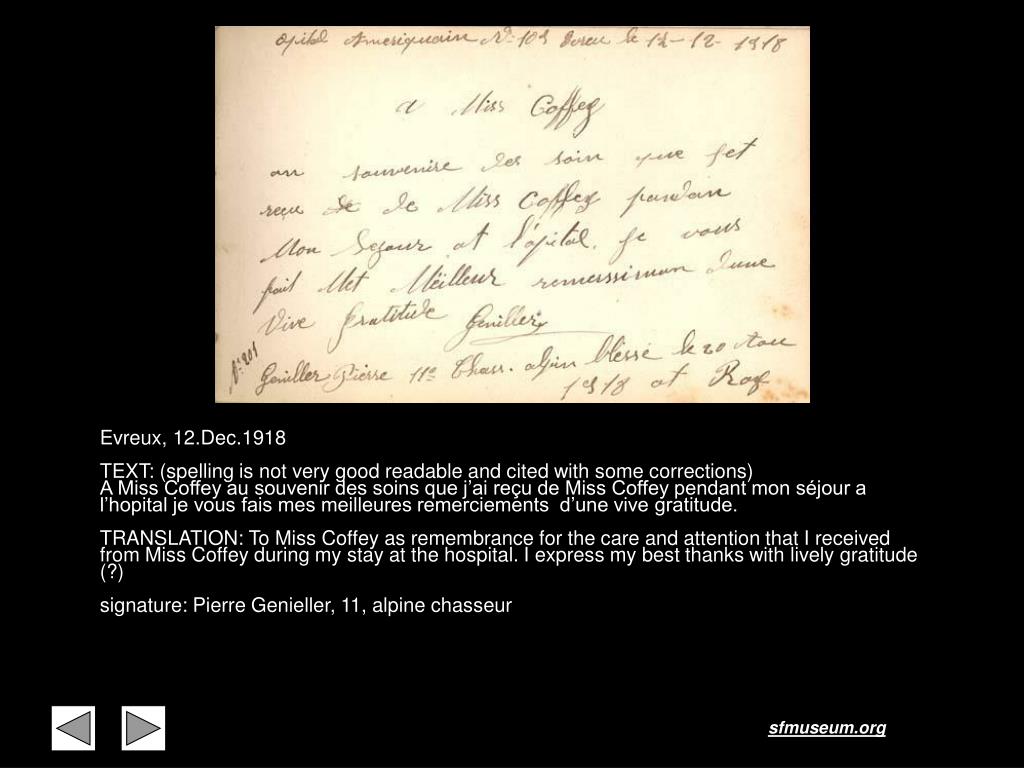 opital Ameriquain No 109 Evreu le 12-12-1918
a Miss Coffey
au souvenire des soin que jet
reçu de de Miss Coffey pandan
Mon Sejour at l'opital. je vous
fait Met Meilleur remerssiman dune
Vive Gratitude Geniller
No 201
Geniller Pierre 11e Chass. alpin blessé le 20 
1918 at
Evreux, 12.Dec.1918
TEXT: (spelling is not very good readable and cited with some corrections)
A Miss Coffey au souvenir des soins que j'ai reçu de Miss Coffey pendant mon séjour a
l'hopital je vous fais mes meilleures remerciements d'une vive gratitude.
TRANSLATION: To Miss Coffey as remembrance for the care and attention that I received
from Miss Coffey during my stay at the hospital. I express my best thanks with lively gratitude
(?)
signature: Pierre Genieller, 11, alpine chasseur
sfmuseum.org